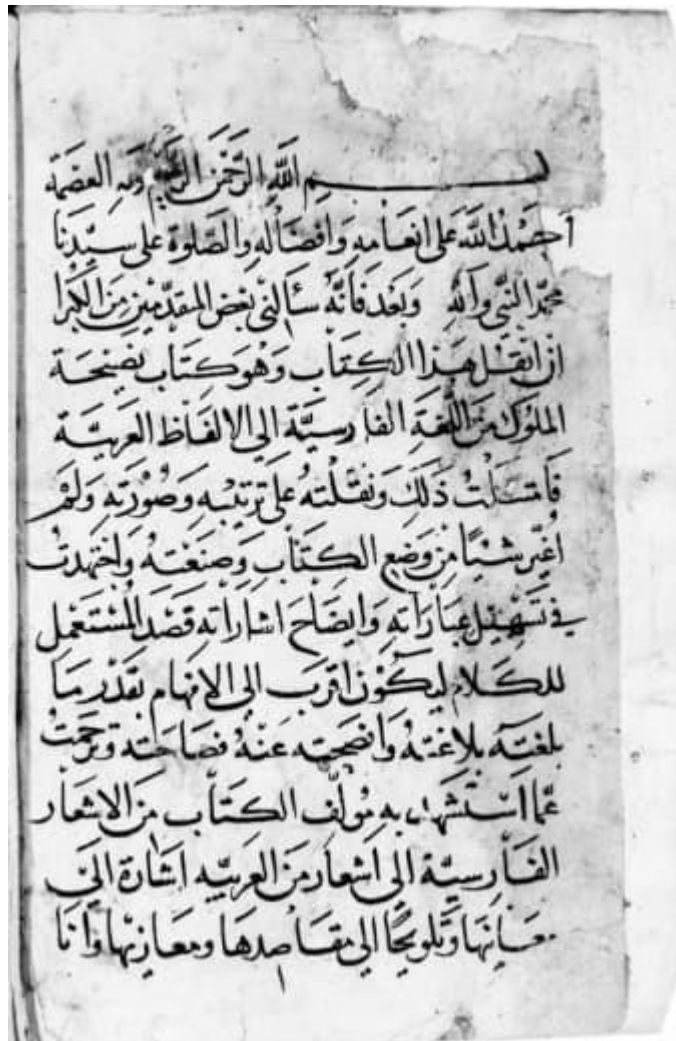 بسم الله الرحمن الرحيم وبه العصمة
احمد الله على انعامه وافضاله والصلوة على سيدنا
محمد النبي وآله وبعد فانه سألني بعض المقدمين من الكبرا
ان انقل هذا الكتاب وهو كتاب نصيحة
الملوك من اللغة الفارسية الي الالفاظ العربية
فامتثلت ذلك ونقلته على ترتيبه وصورته ولم
اغير شيئا من وضع الكتاب وصنعته واجتهدت
في تسهيل عباراته وايضاح اشاراته قصد المستعمل
للكلام ليكون اقرب الي الافهام بقدر ما
بلغته بلاغته عنه فصاحته وترجمت
عما استشهد به مولف الكتاب من الاشعار
الفارسية الي اشعار من العربيه اشارة الي
معانيها وتلويحا الي مقاصدها ومغازيها وانا